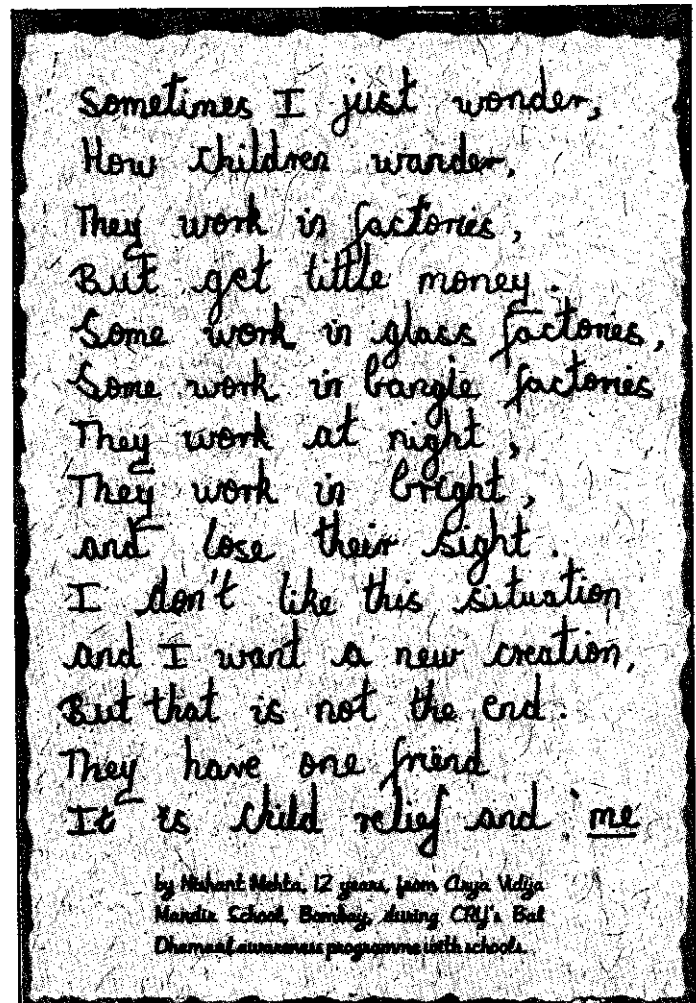 Sometimes I just wonder,
How children wander,
They work in factories,
But get little money.
Some work in glass factories,
Some work in bangle factories
They work at night,
They work in bright,
and lose their sight.
I don't like this situation
and I want a new creation,
But that is not the end.
They have one friend
It is child relief and 'me
by Nishant Mehta, 12 years, from Arya Vidya
Mandir School, Bombay, during CRY's Bal
Dhamaal awareness programme with schools.